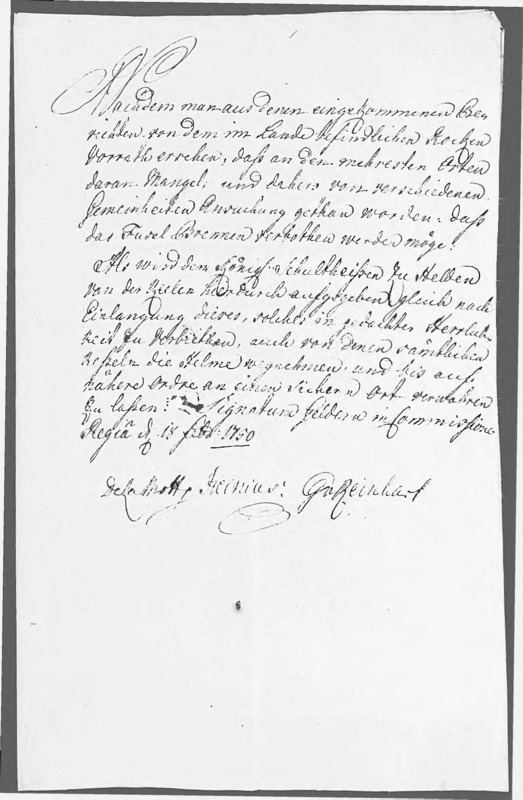 Nachdem man aus denen eingekommenen Be-
richten von dem im Lande befindlichen Rocken
Vorrath ersehen, daß an den mehresten Orten
daran Mangel, und dahero von verschiedenen
Gemeinheiten Ansuchung gethan worden, daß
das Fusel Brennen verbothen werden möge.
Als wird dem Königl. Schultheißen zu Helden
van der Reelen hierdurch aufgegeben, gleich nach
Einlangung dieses, solches in gedachter Herrlich-
keit zu verbiethen, auch von denen sämtlichen
Kesseln die Helme wegnehmen, und bis auf
nähere Ordre an einen sichern Ort verwahren
zu laßen. Signatum Geldern in Commissione
Regia d. 13 febr. 1750
De la Motte Heinius. Reinhart